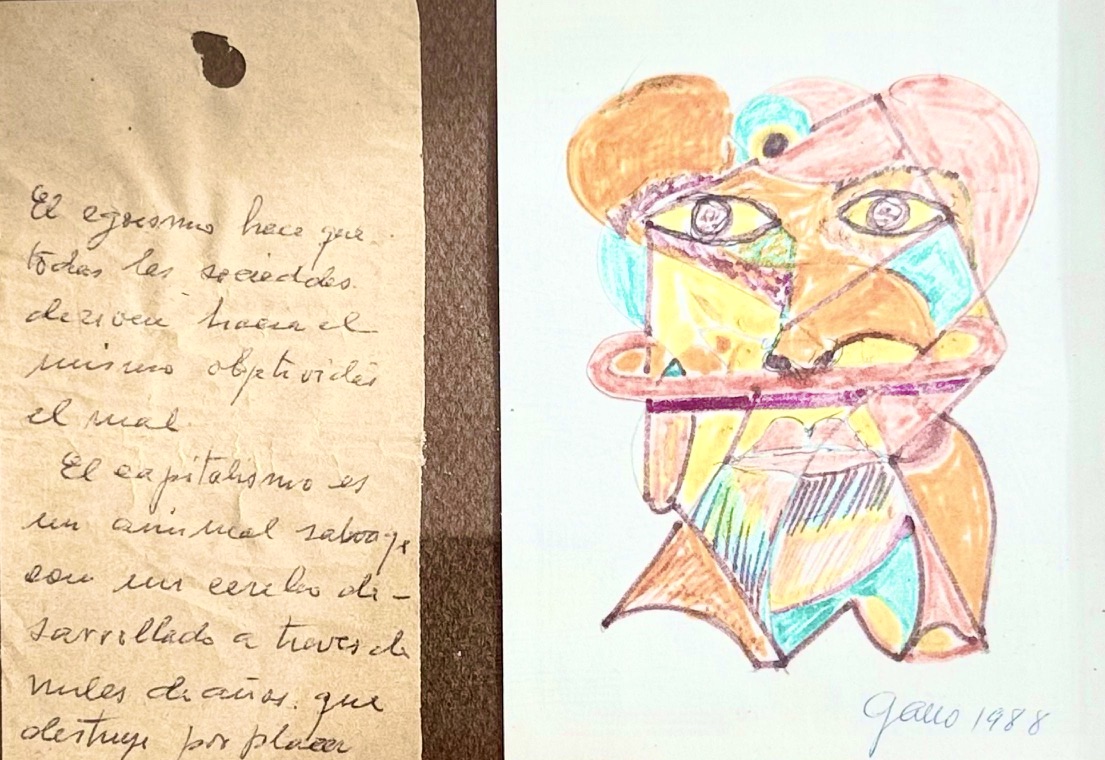 El egoismo hace que
todas las sociedades
deriven hacia el
mismo objetivo:
el mal
El capitalismo es
un animal salvaje
con un cerebro de-
sarrollado a traves de
miles de años. que
destruye por placer
1988